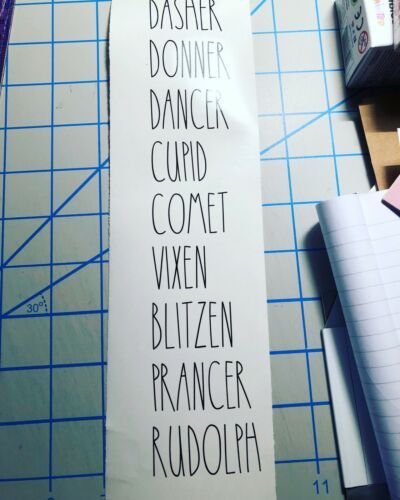 DASHER
DONNER
DANCER
CUPID
COMET
VIXEN
BLITZEN
PRANCER
RUDOLPH
30°
11